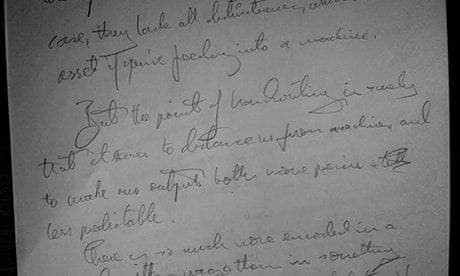 case, they lack all distinctiveness, which
asset if you're feeding into a machine.
But the point of handwriting is surely
that it serves to distance us from machines, and
to make our output both more precise &
less predictable.
There is so much more encoded in a
than in something